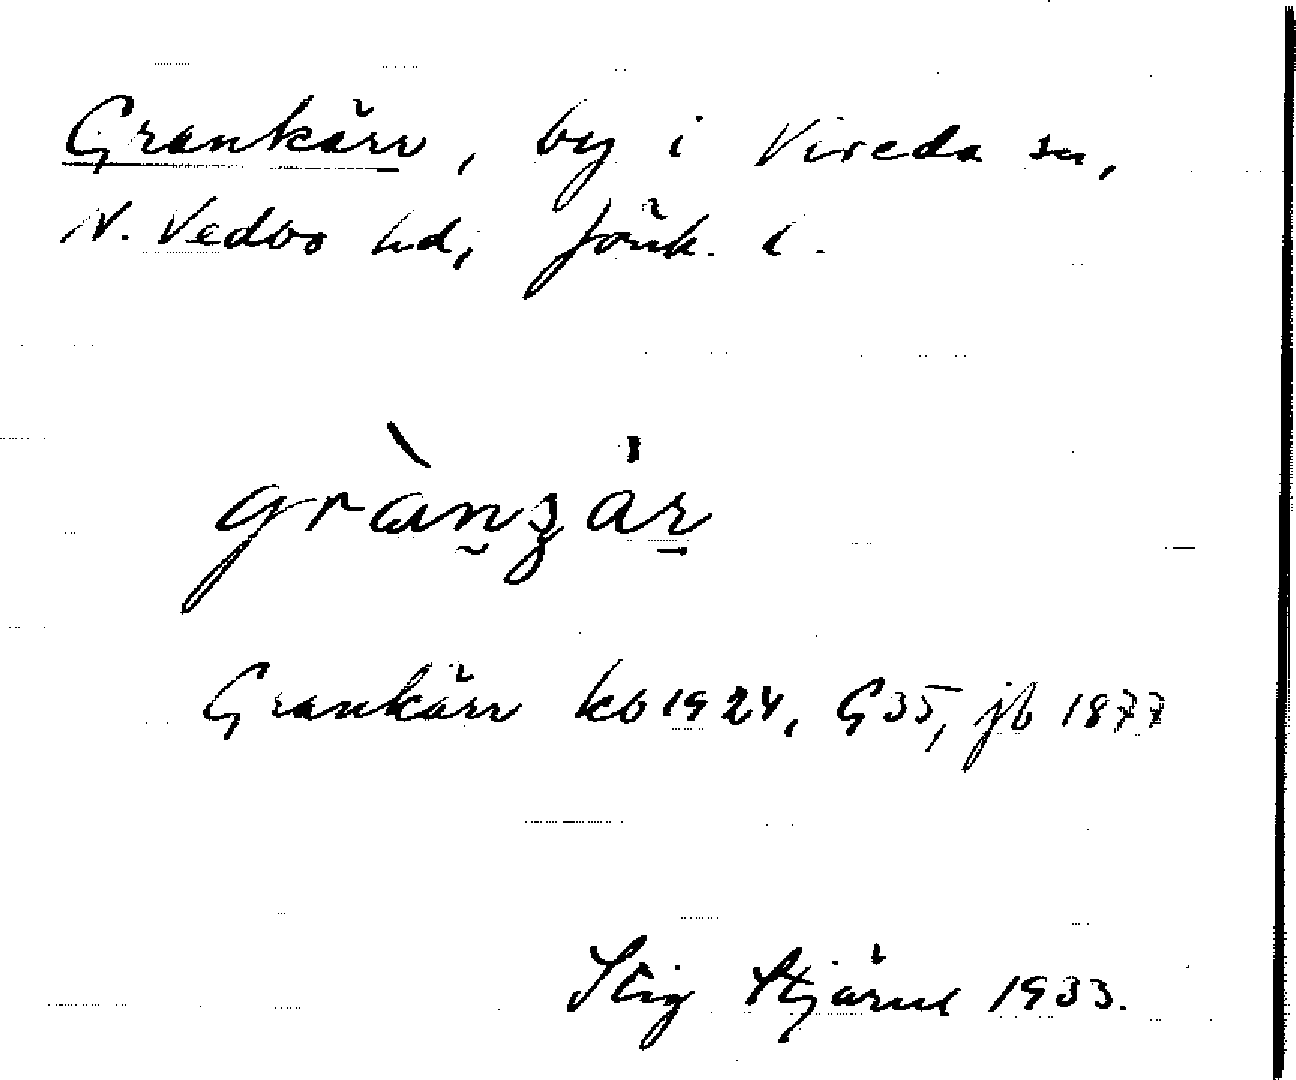 Grankärr, by i Vireda sn,
N. Vedbo hd, Jönk. l.
grànzär
Grankärr kb 1924, G35, jb 1877
Stig Stjärne 1933.